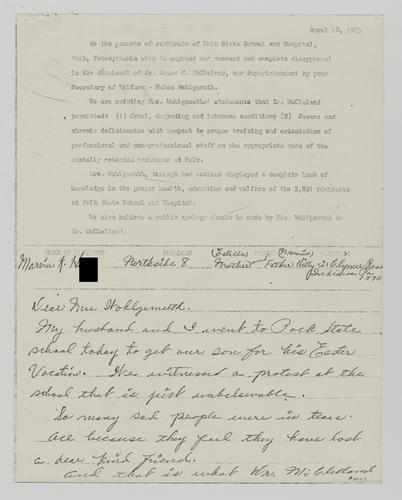 April 18, 1973
We the parents of residents of Polk State School and Hospital,
Polk, Pennsylvania wish to express our concern and complete disapproval
in the dismissal of Dr. James H. McClelland, our Superintendent by your
Secretary of Welfare - Helen Wohlgemuth.
We are refuting Mrs. Wohlgemuths' statements that Dr. McClelland
permitted: (1) Cruel, degrading and inhumane conditions (2) Severe and
chronic deficiencies with respect to proper training and orientation of
professional and non-professional staff on the appropriate care of the
mentally retarded residents at Polk.
Mrs. Wohlgemuth, through her actions displayed a complete lack of
knowledge in the proper health, education and welfare of the 2,831 residents
at Polk State School and Hospital.
We also believe a public apology should be made by Mrs. Wohlgemuth to
Dr. McClelland.
BUILDING
Marvin K. Northside 8 (Estelle) Mother and Father
Dear Mrs Wohlgemuth.
My husband and I went to Polk State
school today to get our son for his Easter
Vacation. I've witnessed a protest at the
school that is just unbelievable.
So many sad people were in tears.
All because they feel they have lost
a dear kind friend.
And that is what Dr. McClelland
over